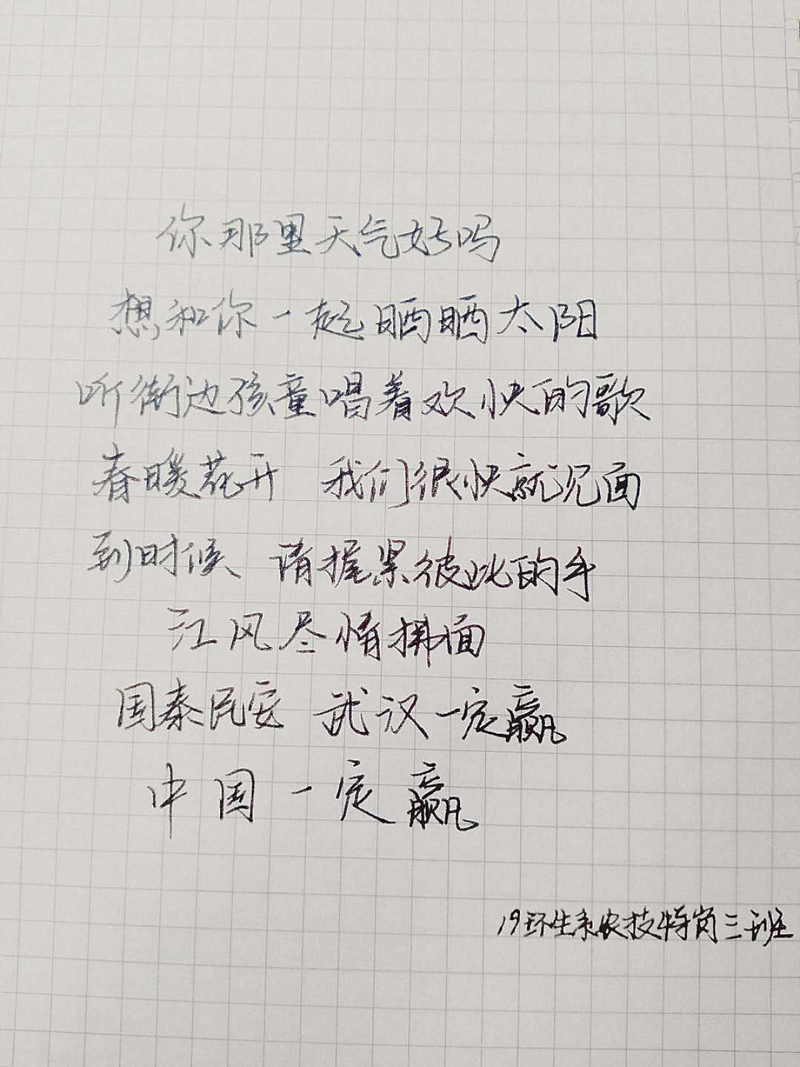 你那里天气好吗
想和你一起晒晒太阳
听街边孩童唱着欢快的歌
春暖花开 我们很快就见面
到时候 请握紧彼此的手
江风尽情拂面
国泰民安 武汉一定赢
中国一定赢
19环生系农技特岗三班